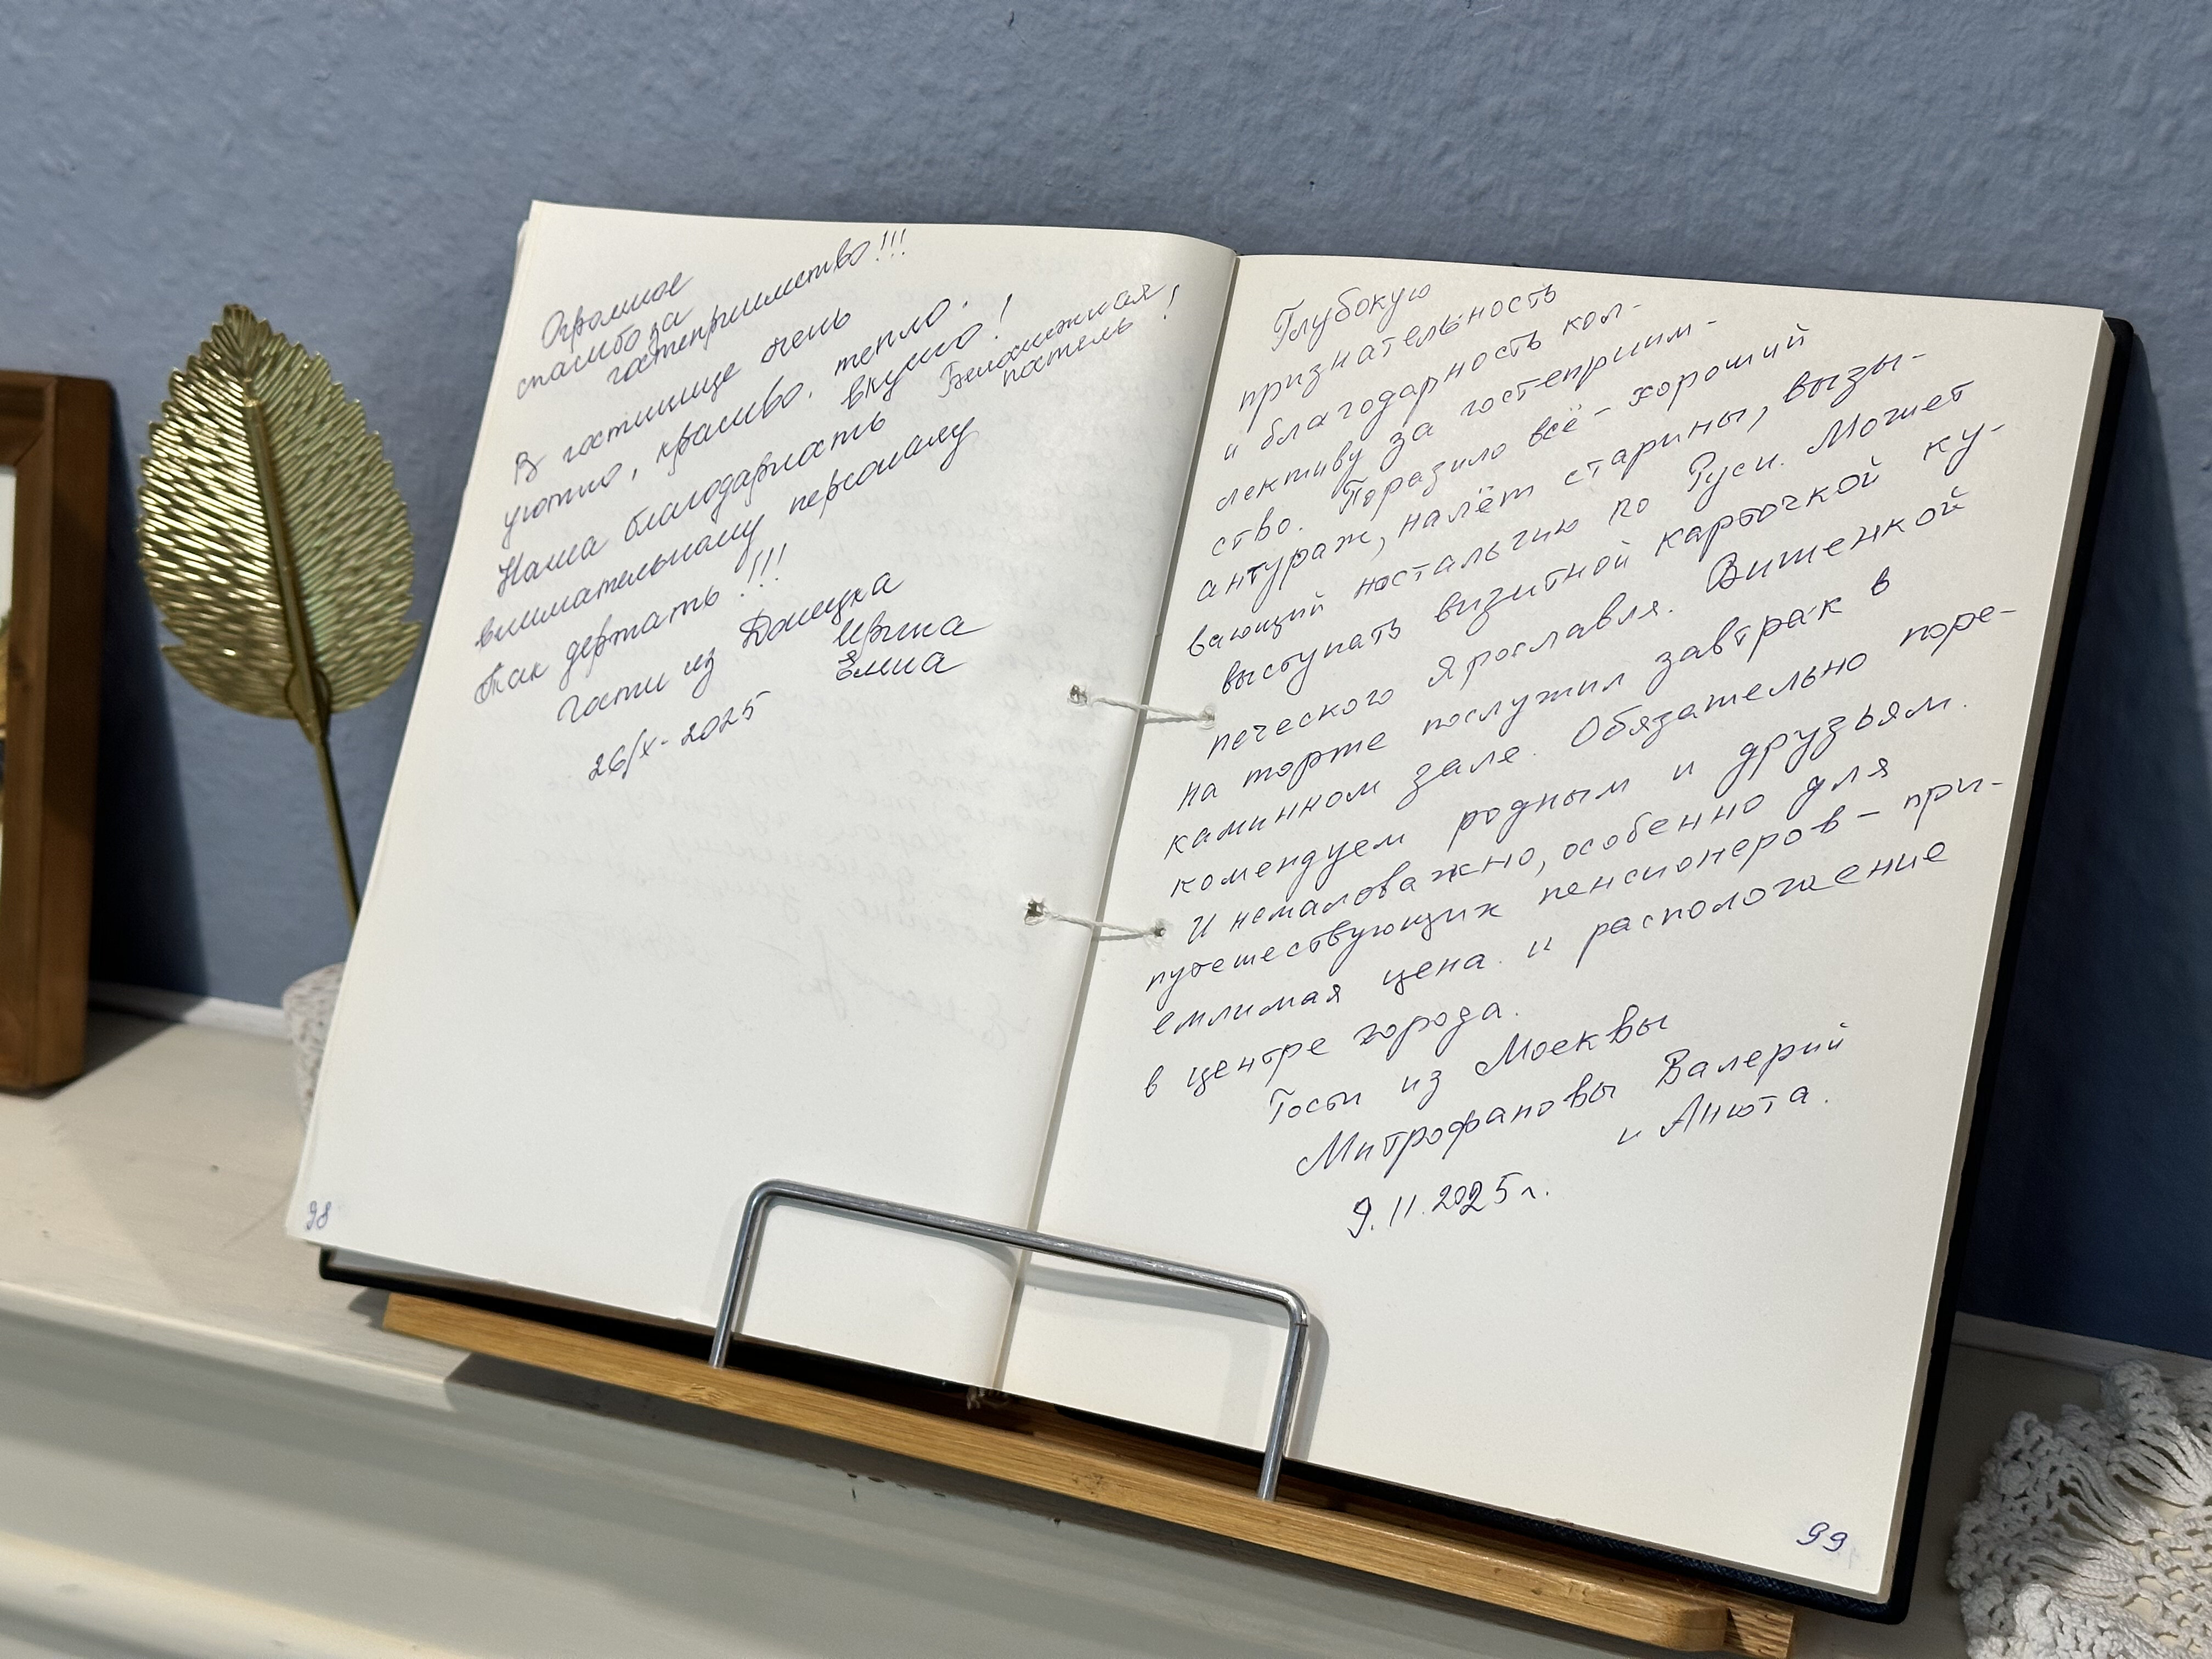 Огромное
спасибо за
гостеприимство!!!
В гостинице очень
уютно, красиво, тепло.
вкусно!
Белоснежная
постель!
Наша благодарность
внимательному персоналу
Так держать!!!
Гости из Донецка
Ирина
Элина
26/X-2025
98
Глубокую
признательность
и благодарность кол-
лективу за гостеприим-
ство. Поразило всё - хороший
антураж, налёт старины, вызы-
вающий ностальгию по Руси. Может
выступать визитной карточкой ку-
печеского Ярославля. Вишенкой
на торте послужил завтрак в
каминном зале. Обязательно поре-
комендуем родным и друзьям.
И немаловажно, особенно для
путешествующих пенсионеров - при-
емлимая цена и расположение
в центре города.
Гости из Москвы
Митрофановы Валерий
и Анюта.
9.11.2025г.
99